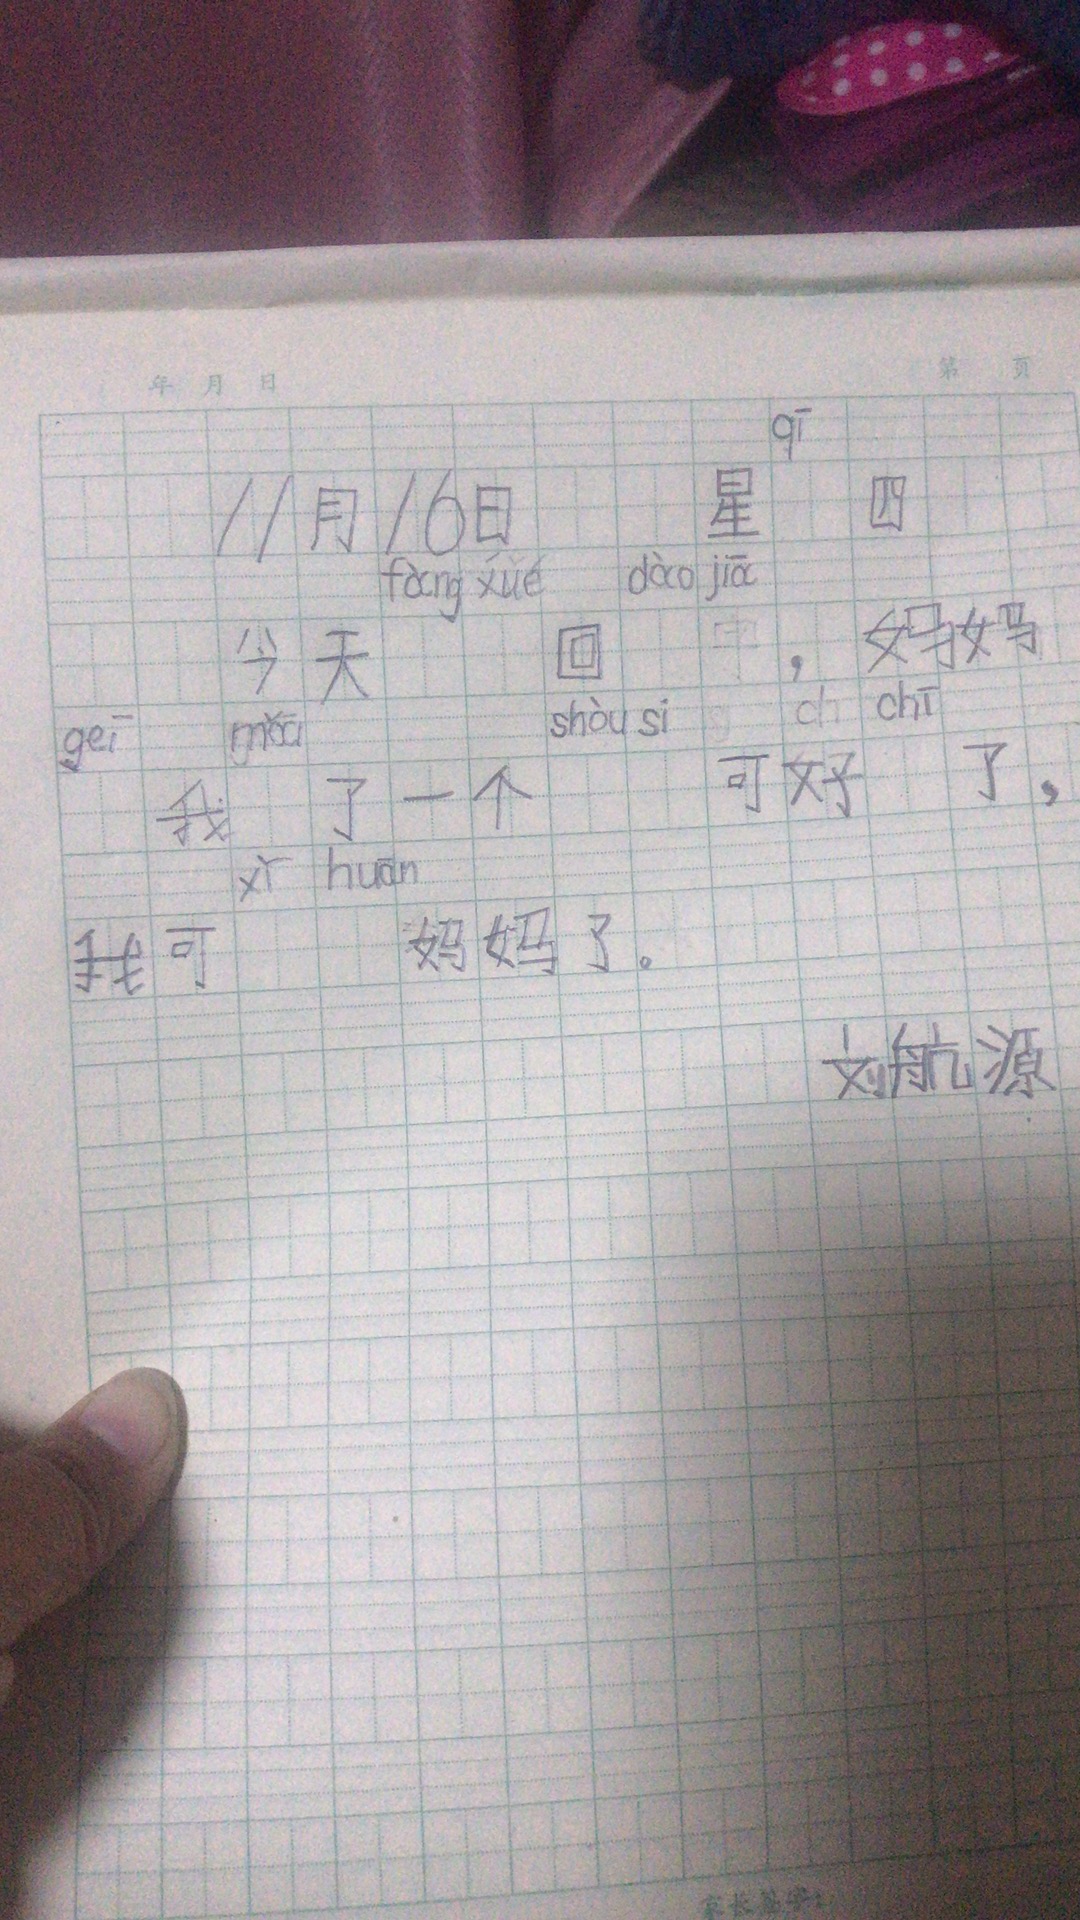 年 月 日 第 页
qī
11月16日 星 四
fàng xué dào jiā
今天 回 , 妈妈
geī mǎi shòu si chī
我 了一个 可好 了,
xǐ huān
我可 妈妈了。
刘航源
家长签字: